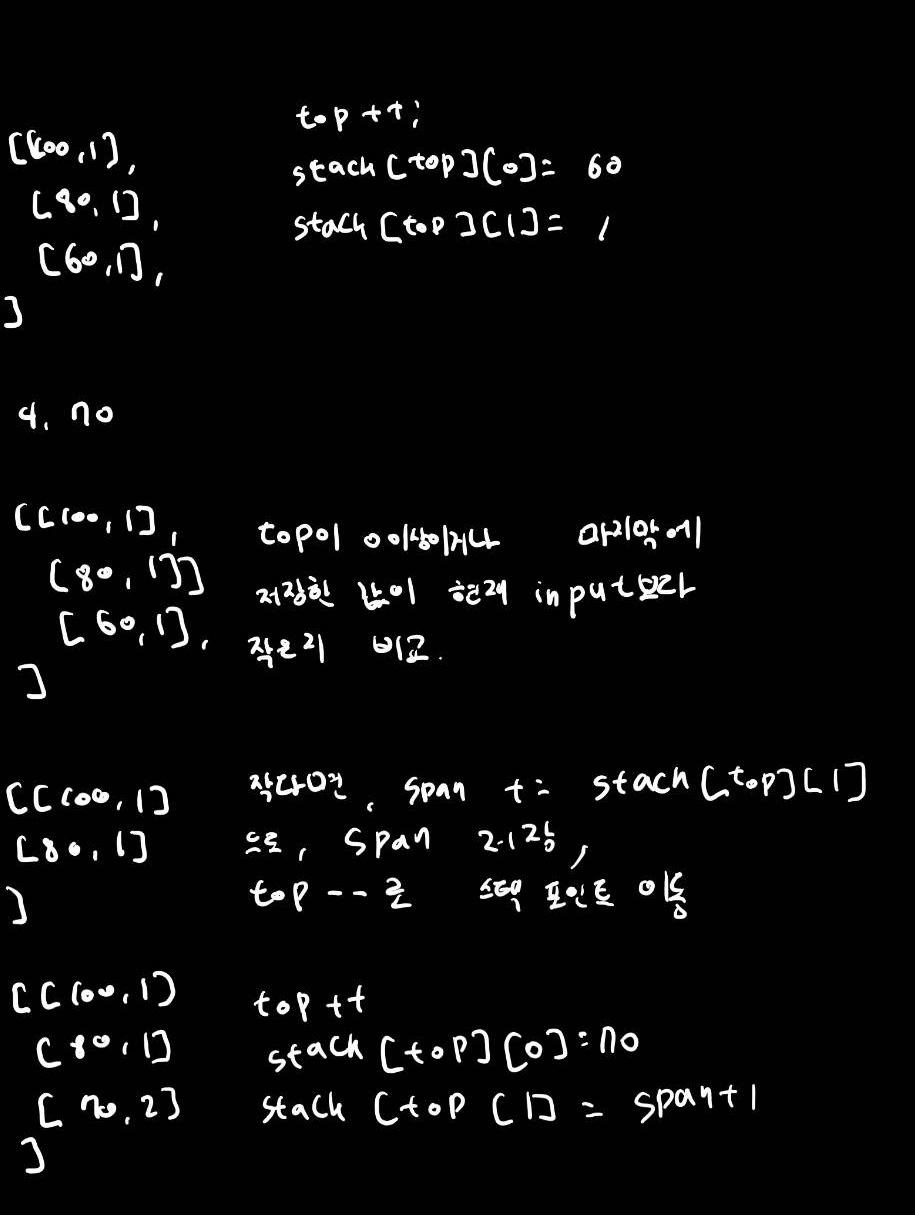 top ++;
[[100,1],
stack [top][0]= 60
[80,1],
stack [top][1]= 1
[60,1],
]
4. 70
[[100,1],
top이 0이상이거나 마지막에
[80,1]]
저장한 값이 현재 input보다
[60,1],
작은지 비교.
]
작다면, span += stack[top][1]
[[100,1]
[80,1]
으로, span 증감,
]
top -- 로 스택 포인트 이동
[[100,1]
top ++
[80,1]
stack [top][0]=70
[70,2]
stack [top [1] = span+1
]